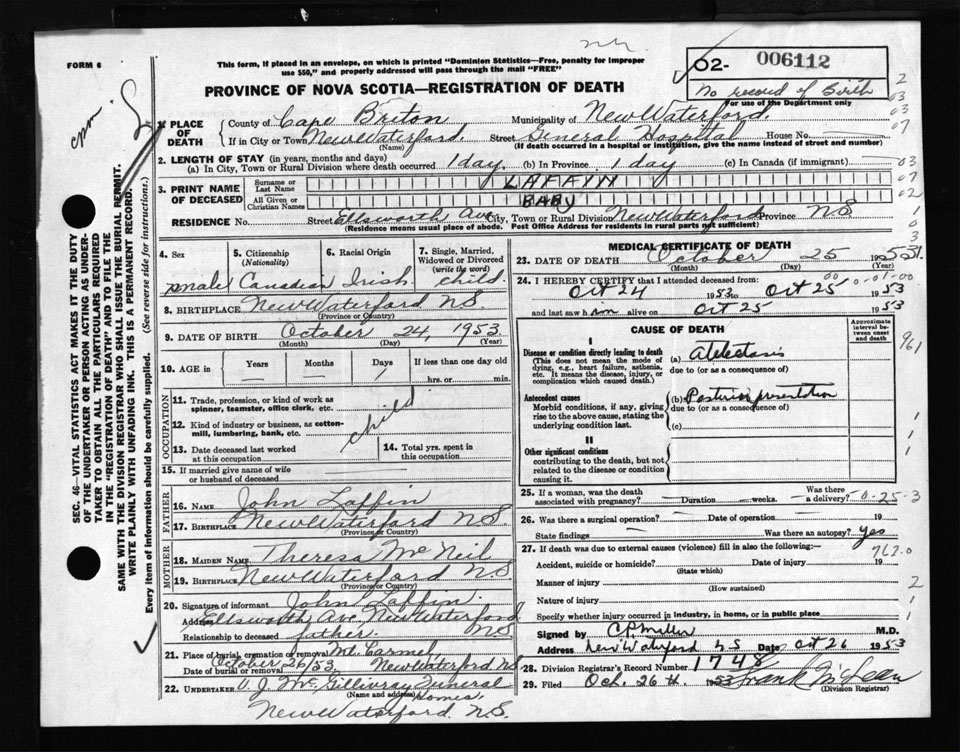 FORM 6
This form, if placed in an envelope, on which is printed "Dominion Statistics—Free, penalty for improper
use $50," and properly addressed will pass through the mail "FREE"
O2- 006112
No record of Birth
For use of the Department only
PROVINCE OF NOVA SCOTIA—REGISTRATION OF DEATH
1. PLACE OF DEATH
County of Cape Briton Municipality of New Waterford.
If in City or Town New Waterford. Street General Hospital House No.
(Name) (If death occurred in a hospital or institution, give the name instead of street and number)
2. LENGTH OF STAY (in years, months and days)
(a) In City, Town or Rural Division where death occurred 1 day (b) In Province 1 day (c) In Canada (if immigrant)
3. PRINT NAME OF DECEASED
Surname or Last Name LAFFIN
All Given or Christian Names BABY
RESIDENCE No. Street Ellsworth Ave City, Town or Rural Division New Waterford Province NS
(Residence means usual place of abode. Post Office Address for residents in rural parts not sufficient)
4. Sex male
5. Citizenship (Nationality) Canadian
6. Racial Origin Irish
7. Single, Married, Widowed or Divorced (write the word) child.
8. BIRTHPLACE New Waterford NS
(Province or Country)
9. DATE OF BIRTH October 24, 1953.
(Month) (Day) (Year)
10. AGE in Years Months Days If less than one day old
— — 1 hrs. or min.
OCCUPATION
11. Trade, profession, or kind of work as
spinner, teamster, office clerk, etc.
12. Kind of industry or business, as cotton-
mill, lumbering, bank, etc.
child
13. Date deceased last worked at this occupation
14. Total yrs. spent in this occupation
15. If married give name of wife
or husband of deceased
FATHER
16. NAME John Laffin
17. BIRTHPLACE New Waterford NS.
(Province or Country)
MOTHER
18. MAIDEN NAME Theresa McNeil
19. BIRTHPLACE New Waterford NS
(Province or Country)
20. Signature of informant John Laffin.
Address Ellsworth Ave. New Waterford NS
Relationship to deceased father.
21. Place of burial, cremation or removal Mt. Carmel,
Date of burial or removal October 26/53. New Waterford NS
22. UNDERTAKER V. J. McGillivray Funeral Homes,
(Name and address)
New Waterford. N.S.
MEDICAL CERTIFICATE OF DEATH
23. DATE OF DEATH October 25 1953
(Month) (Day) (Year)
24. I HEREBY CERTIFY that I attended deceased from:
Oct 24 1953 to Oct 25 1953
and last saw him alive on Oct 25 1953
CAUSE OF DEATH
Approximate interval between onset and death
I
Disease or condition directly leading to death (a) Atelectasis
(This does not mean the mode of dying, e.g., heart failure, asthenia, etc. It means the disease, injury, or complication which caused death.)
due to (or as a consequence of)
Antecedent causes (b) Posterior presentation
Morbid conditions, if any, giving rise to the above cause, stating the underlying condition last.
due to (or as a consequence of)
(c)
II
Other significant conditions
contributing to the death, but not related to the disease or condition causing it.
25. If a woman, was the death associated with pregnancy? — Duration — weeks. — Was there a delivery?
26. Was there a surgical operation? — Date of operation — 19
State findings Was there an autopsy? Yes
27. If death was due to external causes (violence) fill in also the following:—
Accident, suicide or homicide? Date of injury 19
(State which)
Manner of injury
(How sustained)
Nature of injury
Specify whether injury occurred in industry, in home, or in public place
Signed by C.P. Miller M.D.
Address New Waterford N S Date Oct 26 1953
28. Division Registrar's Record Number 1748
29. Filed Oct. 26 th. 1953 Frank McLean
(Division Registrar)
SEC. 46—VITAL STATISTICS ACT MAKES IT THE DUTY
OF THE UNDERTAKER OR PERSON ACTING AS UNDER-
TAKER TO OBTAIN ALL THE PARTICULARS REQUIRED
IN THE "REGISTRATION OF DEATH" AND TO FILE THE
SAME WITH THE DIVISION REGISTRAR WHO SHALL ISSUE THE BURIAL PERMIT.
WRITE PLAINLY WITH UNFADING INK. THIS IS A PERMANENT RECORD.
Every item of information should be carefully supplied. (See reverse side for instructions.)
2
03
03
07
03
07
02
1
0
3
961
1
1
1
0-25-3
762.0
2
1